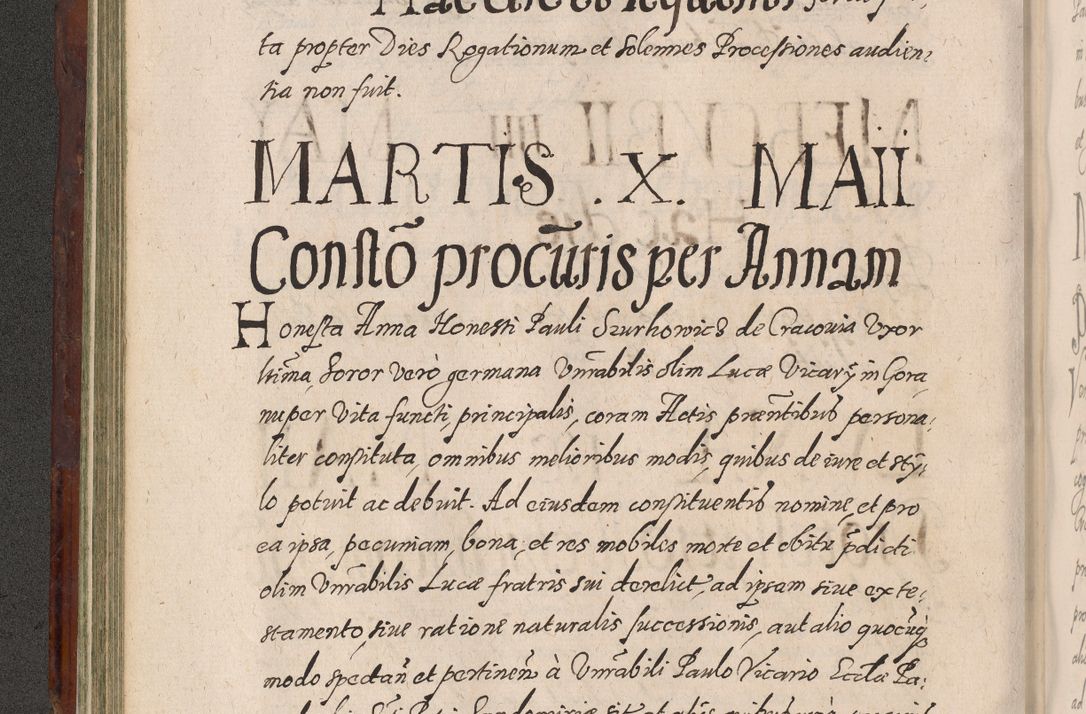 ta propter Dies Rogationum et Solennes Processiones audien:
tia non fuit.
MARTIS .X. MAII
Constõ procũris per Annam
Honesta Anna Honesti Pauli Szurkowicz de Cracovia Uxor
ltĩma, Soror verò germana Vnrãbilis olim Lucæ Vicarÿ in Gora,
nuper vita functi, principalis, coram Actis præñtibus persona:
liter constituta, omnibus melioribus modis, quibus de iure et stÿ:
lo potuit ac debuit. Ad eiusdem constituentis nomine, et pro
ea ipsa, pecuniam, bona, et res mobiles morte et obitu p̃dicti
olim Vnrãbilis Lucæ fratris sui derelict, ad ipsam siue ex te:
stamento, siue ratione naturalis successionis, aut alio quocũq
modo spectañ et pertineñ à Vnrãbili Paulo Vicario Eccl̃æ Pa: